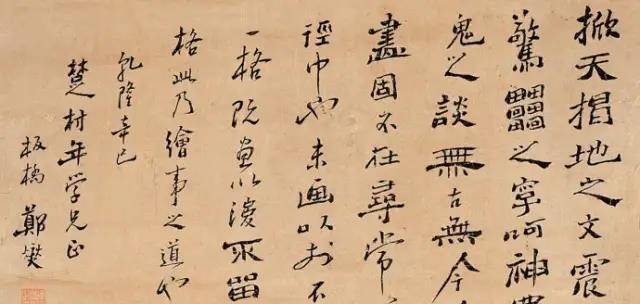 掀天揭地之文震
驚之字呵神
鬼之談無古無今
畫固不在尋常
徑中也未画以前不
一格既畫以後不留
格此乃繪事之道也
乾隆辛巳
楚村年学兄正
板橋鄭燮